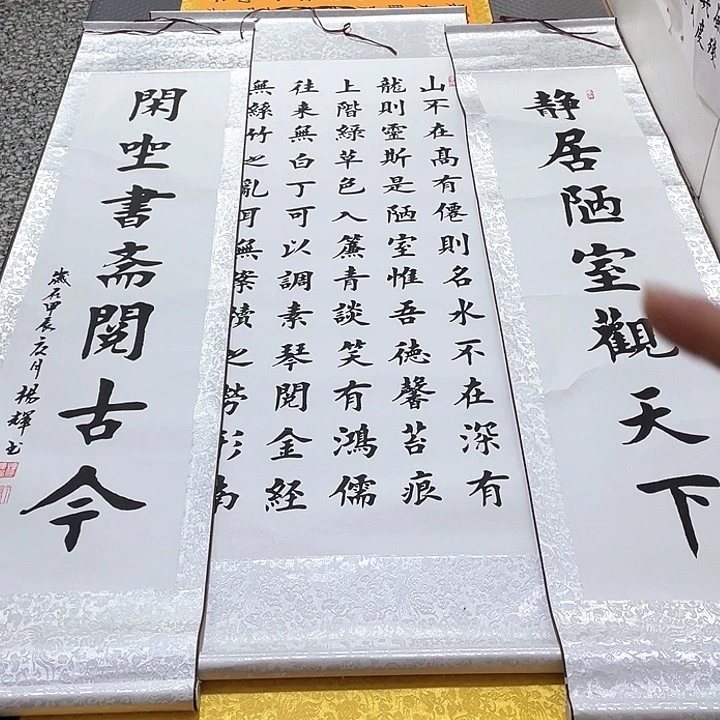 静居陋室觀天下
山不在髙有僊則名水不在深有
龍則靈斯是陋室惟吾德馨苔痕
上階緑草色入簾青談笑有鴻儒
往来無白丁可以調素琴閲金経
無絲竹之亂耳無案牘之勞形南
閑坐書斎閲古今
歲在甲辰月楊輝书